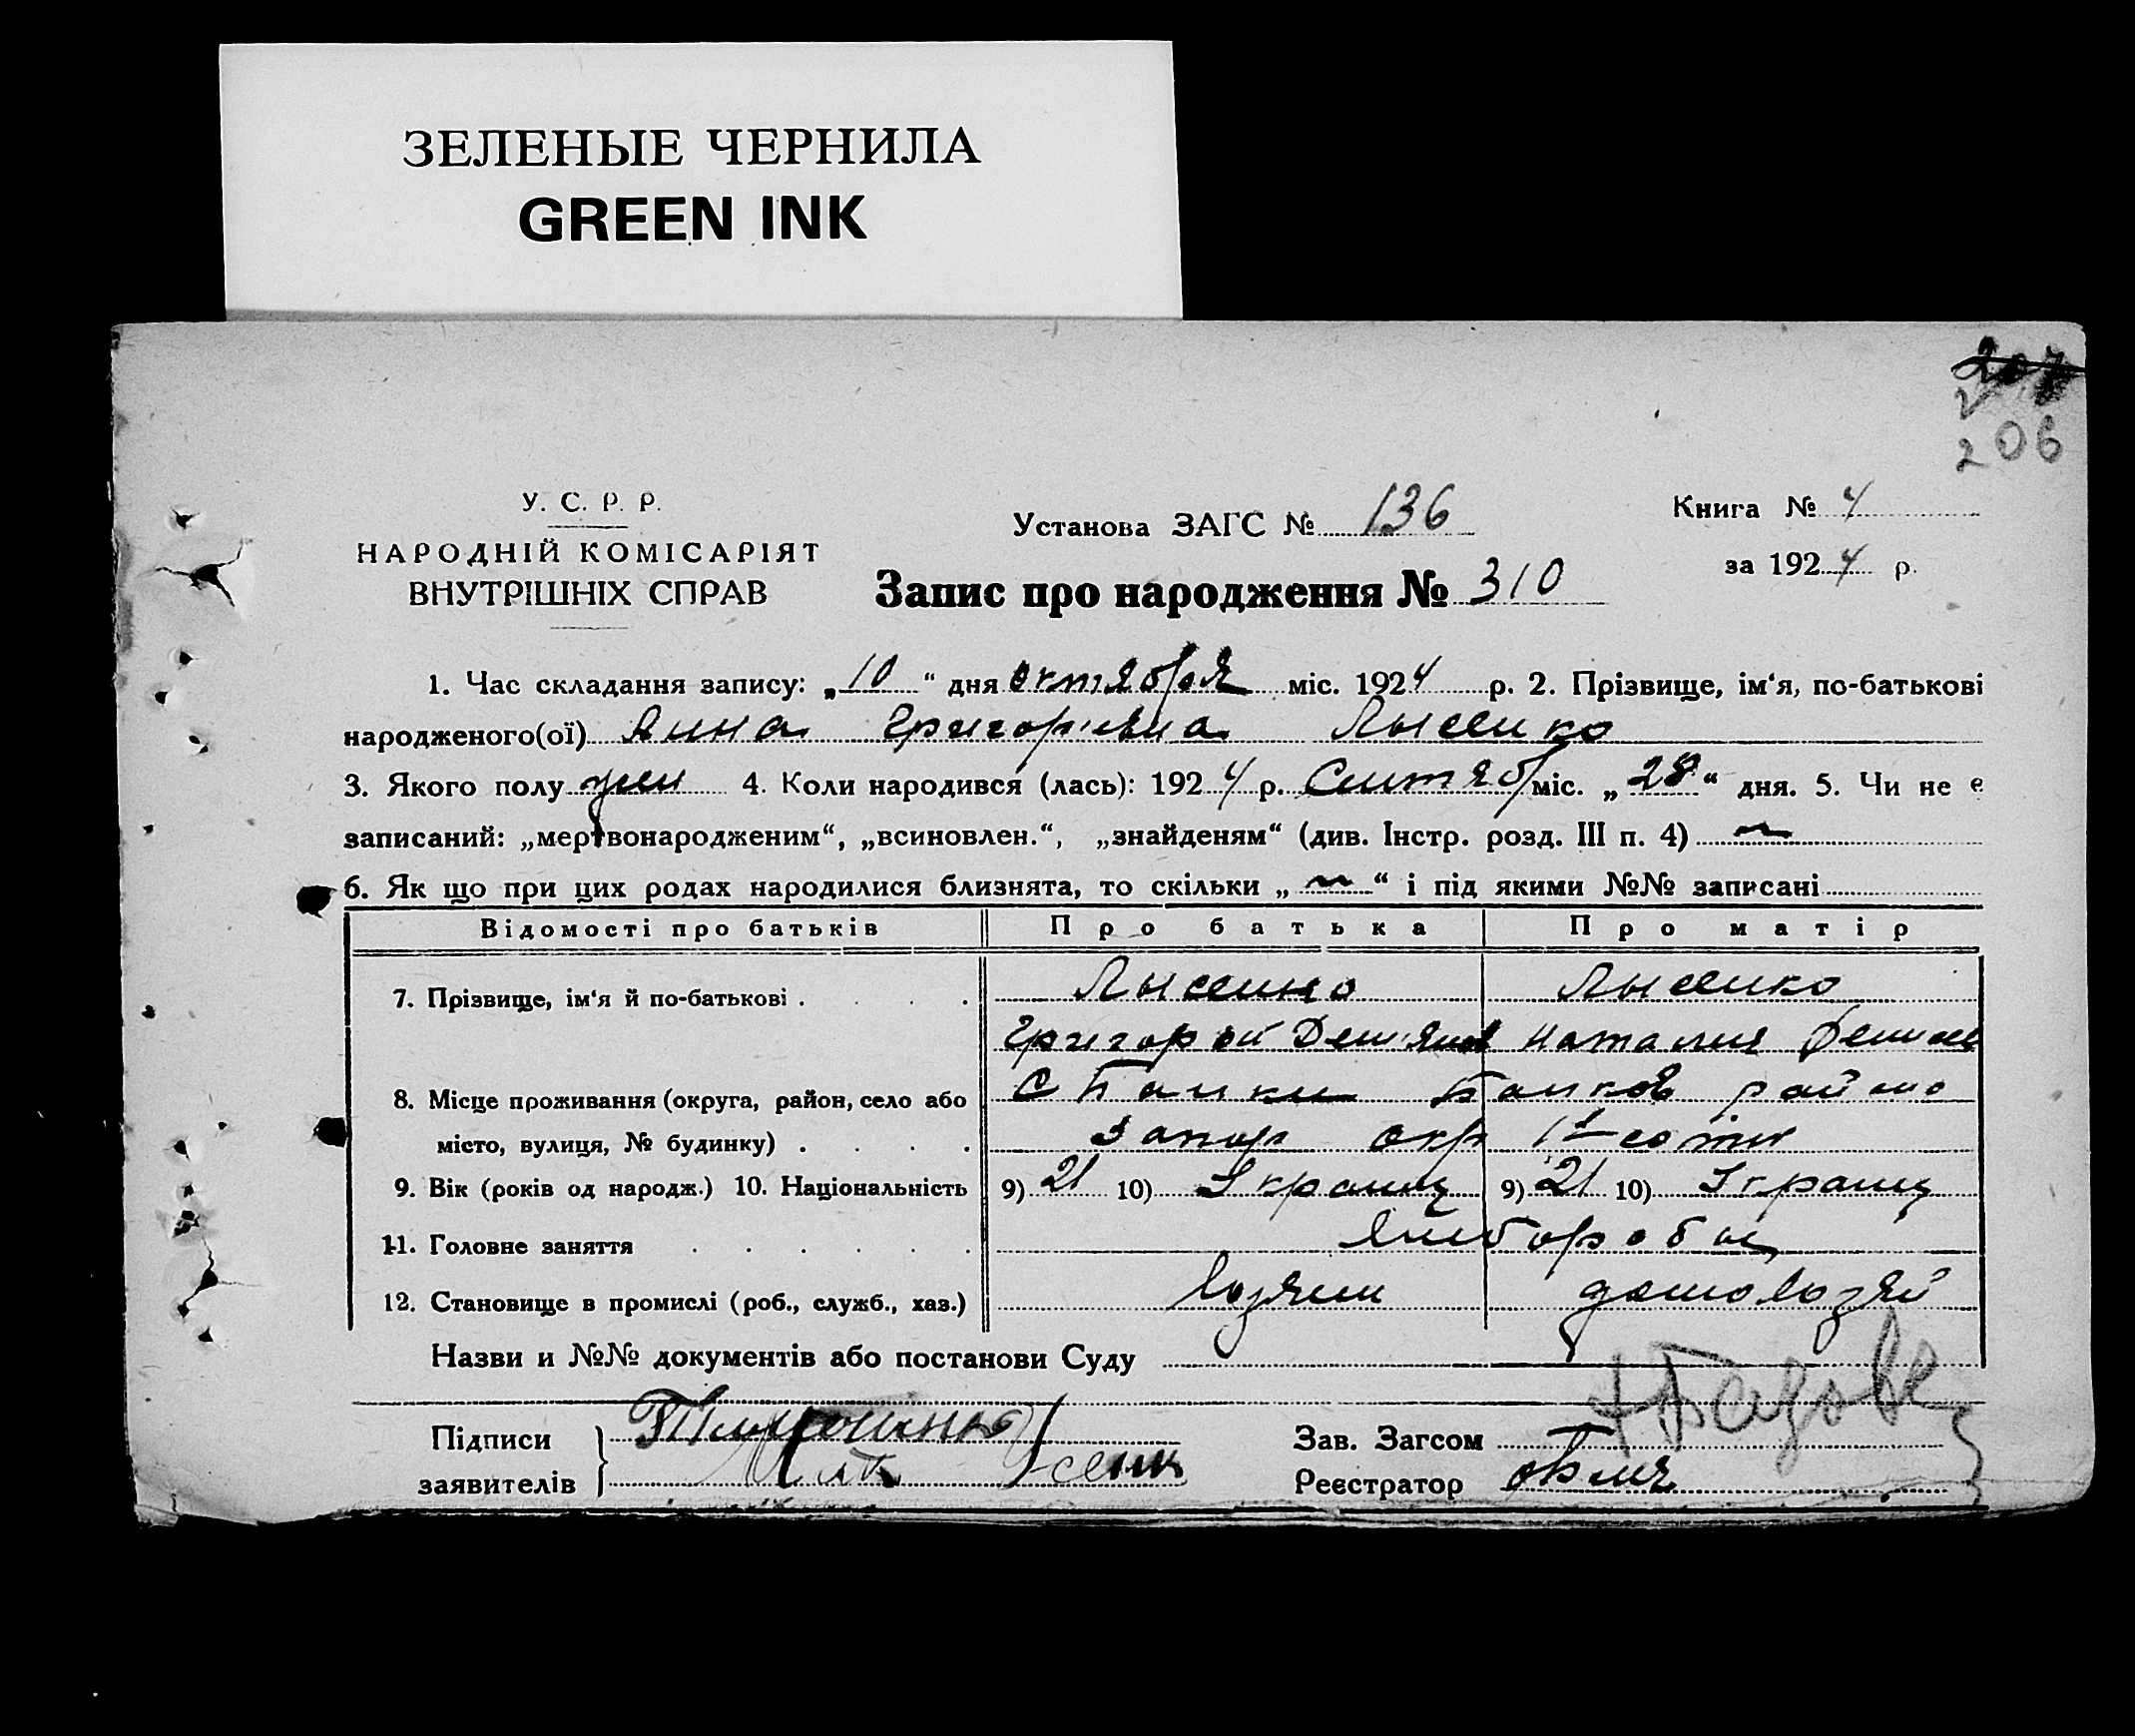 ЗЕЛЕНЫЕ ЧЕРНИЛА
GREEN INK
207
206
У. С. Р. Р.
НАРОДНІЙ КОМІСАРІЯТ
ВНУТРІШНІХ СПРАВ
Установа ЗАГС № 136
Книга № 4
за 1924 р.
Запис про народження № 310
1. Час складання запису: „10“ дня октября міс. 1924 р. 2. Прізвище, ім‘я, по-батькові
народженого(ої) Анна Григорьевна Лысенко
3. Якого полу жен 4. Коли народився (лась): 1924 р. Сентяб міс. „28“ дня. 5. Чи не є
записаний: „мертвонародженим“, „всиновлен.“, „знайденям“ (див. Інстр. розд. III п. 4)
6. Як що при цих родах народилися близнята, то скільки „ “ і під якими №№ записані
Відомості про батьків Про батька Про матір
7. Прізвище, ім‘я й по-батькові . . . . Лысенко Лысенко
Григорий Демьянов Наталия
8. Місце проживання (округа, район, село або с Балки Балков района
місто, вулиця, № будинку) . . . . Запор окр 1й сотни
9. Вік (років од народж.) 10. Національність 9) 21 10) Украинц 9) 21 10) Украинц
11. Головне заняття . . . . . . хлебороб
12. Становище в промислі (роб., служб., хаз.) хозяин домохозяй
Назви и №№ документів або постанови Суду
Підписи
заявителів
Зав. Загсом
Реєстратор